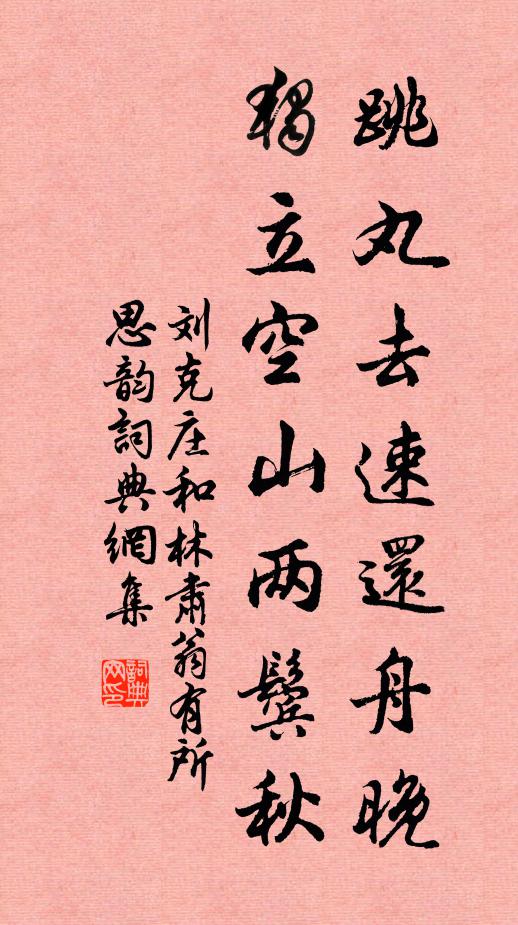 跳丸去速還舟晚
独立空山两鬓秋
刘克庄和林肃翁有所
思韵詞典網集
詞典网印